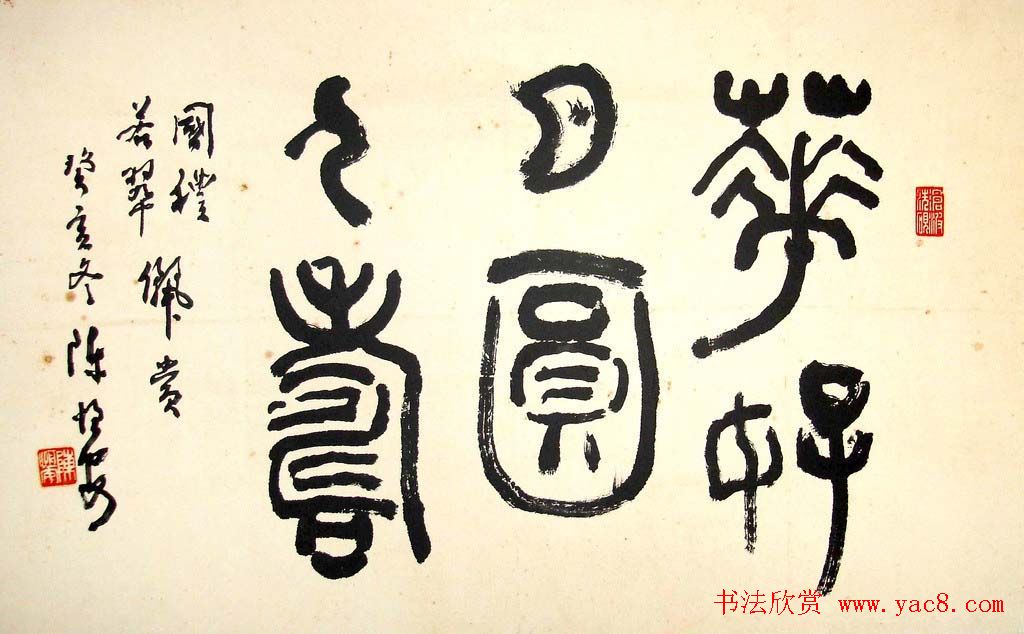 華好
月圓
人壽
國
若翠
賞
癸亥冬 陳恒安
书法欣赏 www.yac8.com